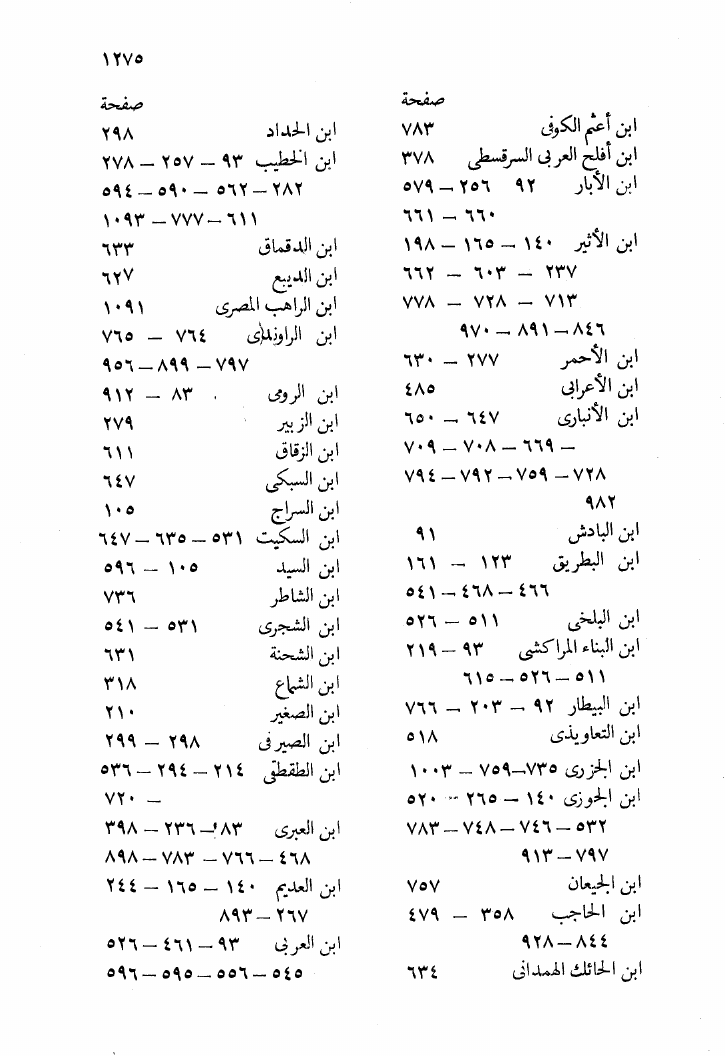 ١٢٧٥
صفحة
ابن أعثم الكوفى ٧٨٣
ابن أفلح العربى السرقسطى ٣٧٨
ابن الأبار ٩٢ ٢٥٦ — ٥٧٩
٦٦٠ — ٦٦١
ابن الأثير ١٤٠ — ١٦٥ — ١٩٨
٢٣٧ — ٦٠٣ — ٦٦٢
٧١٣ — ٧٢٨ — ٧٧٨
٨٤٦ — ٨٩١ — ٩٧٠
ابن الأحمر ٢٧٧ — ٦٣٠
ابن الأعرابى ٤٨٥
ابن الأنبارى ٦٤٧ — ٦٥٠
— ٦٦٩ — ٧٠٨ — ٧٠٩
٧٢٨ — ٧٥٩ — ٧٩٢ — ٧٩٤
٩٨٢
ابن البادش ٩١
ابن البطريق ١٢٣ — ١٦١
٤٦٦ — ٤٦٨ — ٥٤١
ابن البلخى ٥١١ — ٥٢٦
ابن البناء المراكشى ٩٣ — ٢١٩
٥١١ — ٥٢٦ — ٦١٥
ابن البيطار ٩٢ — ٢٠٣ — ٧٦٦
ابن التعاويذى ٥١٨
ابن الجزرى ٧٣٥ — ٧٥٩ — ١٠٠٣
ابن الجوزى ١٤٠ — ٢٦٥ — ٥٢٠
٥٣٢ — ٧٤٦ — ٧٤٨ — ٧٨٣
٧٩٧ — ٩١٣
ابن الجيعان ٧٥٧
ابن الحاجب ٣٥٨ — ٤٧٩
٨٤٤ — ٩٢٨
ابن الحائك الهمدانى ٦٣٤
صفحة
ابن الحداد ٢٩٨
ابن الخطيب ٩٣ — ٢٥٧ — ٢٧٨
٢٨٢ — ٥٦٢ — ٥٩٠ — ٥٩٤
٦١١ — ٧٧٧ — ١٠٩٣
ابن الدقماق ٦٣٣
ابن الديبع ٦٢٧
ابن الراهب المصرى ١٠٩١
ابن الراوندى ٧٦٤ — ٧٦٥
٧٩٧ — ٨٩٩ — ٩٥٦
ابن الرومى ٨٣ — ٩١٢
ابن الزبير ٢٧٩
ابن الزقاق ٦١١
ابن السبكى ٦٤٧
ابن السراج ١٠٥
ابن السكيت ٥٣١ — ٦٣٥ — ٦٤٧
ابن السيد ١٠٥ — ٥٩٦
ابن الشاطر ٧٣٦
ابن الشجرى ٥٣١ — ٥٤١
ابن الشحنة ٦٣١
ابن الشماع ٣١٨
ابن الصغير ٢١٠
ابن الصيرفى ٢٩٨ — ٢٩٩
ابن الطقطقى ٢١٤ — ٢٩٤ — ٥٣٦
— ٧٢٠
ابن العبرى ٨٣ — ٢٣٦ — ٣٩٨
٤٦٨ — ٧٦٦ — ٧٨٣ — ٨٩٨
ابن العديم ١٤٠ — ١٦٥ — ٢٤٤
٢٦٧ — ٨٩٣
ابن العربى ٩٣ — ٤٦١ — ٥٢٦
٥٤٥ — ٥٥٦ — ٥٩٥ — ٥٩٦